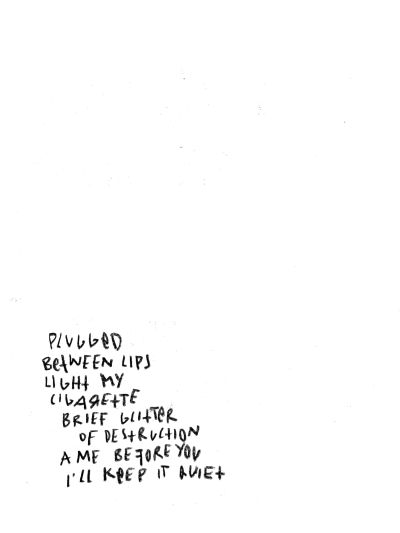 PLUGGeD
BetWEEN LIPS
LIGHt MY
CIGAREttE
BRIEF GLIttER
OF DEStRUCtION
A ME BEFORE YOU
I'LL KeeP IT QUIEt